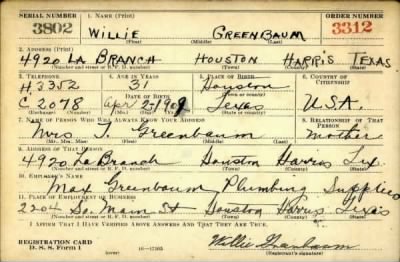 SERIAL NUMBER 1. Name (Print) ORDER NUMBER
3802 WILLIE GREENBAUM 3312
(First) (Middle) (Last)
2. Address (Print)
4920 LA BRANCH HOUSTON HARRIS TEXAS
(Number and street or R. F. D. number) (Town) (County) (State)
3. Telephone 4. Age in Years 5. Place of Birth 6. Country of Citizenship
H 3352 31 Houston
Date of Birth (Town or county)
C 2078 Apr 25 1909 Texas U.S.A.
(Exchange) (No.) (Mo.) (Day) (Yr.) (State or country)
7. Name of Person Who Will Always Know Your Address 8. Relationship of That Person
Mrs T. Greenbaum mother
(Mr., Mrs., Miss) (First) (Middle) (Last)
9. Address of That Person
4920 La Branch Houston Harris Tex
(Number and street or R. F. D. number) (Town) (County) (State)
10. Employer's Name
Max Greenbaum Plumbing Supplies
11. Place of Employment or Business
2204 So. Main St Houston Harris Texas
(Number and street or R. F. D. number) (Town) (County) (State)
I Affirm That I Have Verified Above Answers and That They Are True.
REGISTRATION CARD
D. S. S. Form 1 (over) 16—17105 Willie Greenbaum
(Registrant's signature)